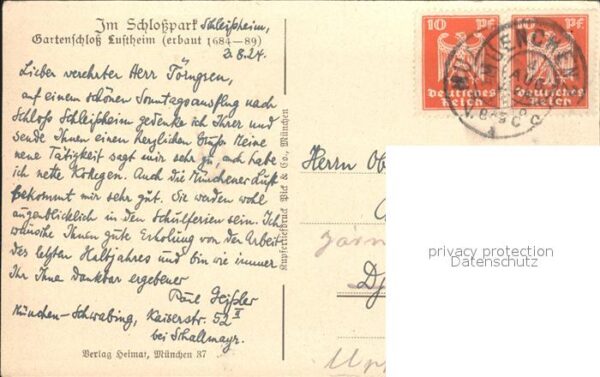 Im Schloßpark Schleißheim,
Gartenschloß Lustheim (erbaut 1684—89)
3.8.24.
Lieber verehrter Herr Törngren,
auf einem schönen Sonntagsausflug nach
Schloss Schleißheim gedenke ich Ihrer und
sende Ihnen einen herzlichen Gruß. Meine
neue Tätigkeit sagt mir sehr zu, auch habe
ich nette Kollegen. Auch die Münchener Luft
bekommt mir sehr gut. Sie werden wohl
augenblicklich in den Schulferien sein. Ich
wünsche Ihnen gute Erholung von der Arbeit
des letzten Halbjahres und bin wie immer
Ihr Ihnen dankbar ergebener
Paul Geißler
München-Schwabing, Kaiserstr. 52 II
bei Schallmayr.
Verlag Heimat, München 37
Kupfertiefdruck Pick & Co., München
10 Pf.
Deutsches
Reich
Pf.
Deutsches
Reich
MUENCHEN
Herrn
privacy protection
Datenschutz